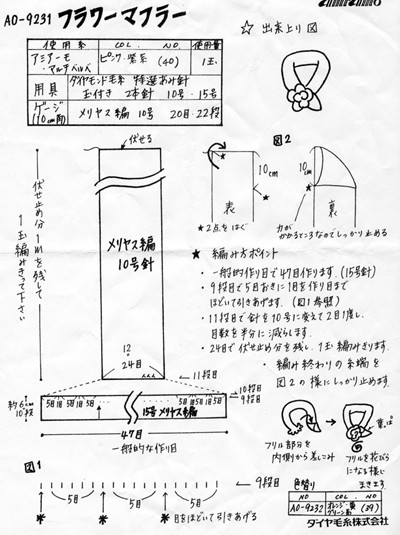 AO-9231 フラワーマフラー
☆ 出来上り図
使用糸 COL. NO. 使用量
ピンク・紫系 (40) 1玉
用具 ダイヤモンド毛糸 特選あみ針
玉付き 2本針 10号・15号
ゲージ (10cm角) メリヤス編 10号 20目・22段
伏せる
伏せ止め分1mを残して
1玉編みきって下さい
メリヤス編
10号針
12
24目
11段目
10段目
9段目
約6cm
10段
5目 1目 5目 1目 5目
15号 メリヤス編
5目 1目 5目 1目 5目
47目
一般的な作り目
図2
10cm
表
★2点をはぐ
10cm
裏
力が
かかるところなのでしっかり止める
★ 編み方ポイント
・一般的作り目で47目作ります。(15号針)
・9段目で5目おきに1目を作り目まで
ほどいて引きあげます。(図1参照)
・11段目で針を10号に変えて2目1度し
目数を半分に減らします。
・24目で伏せ止め分を残し、1玉編みきります。
・編み終わりの糸端を
図2の様にしっかり止めます。
フリル部分を
内側から差しこみ
フリルを花びら
になる様に
まきます
図1
9段目
5目 5目 5目
★ ★ ★ ★ 目をほどいて引きあげる
色替り
NO COL. NO
AO-9232 オレンジ・黄 グリーン系 (39)
ダイヤ毛糸株式会社